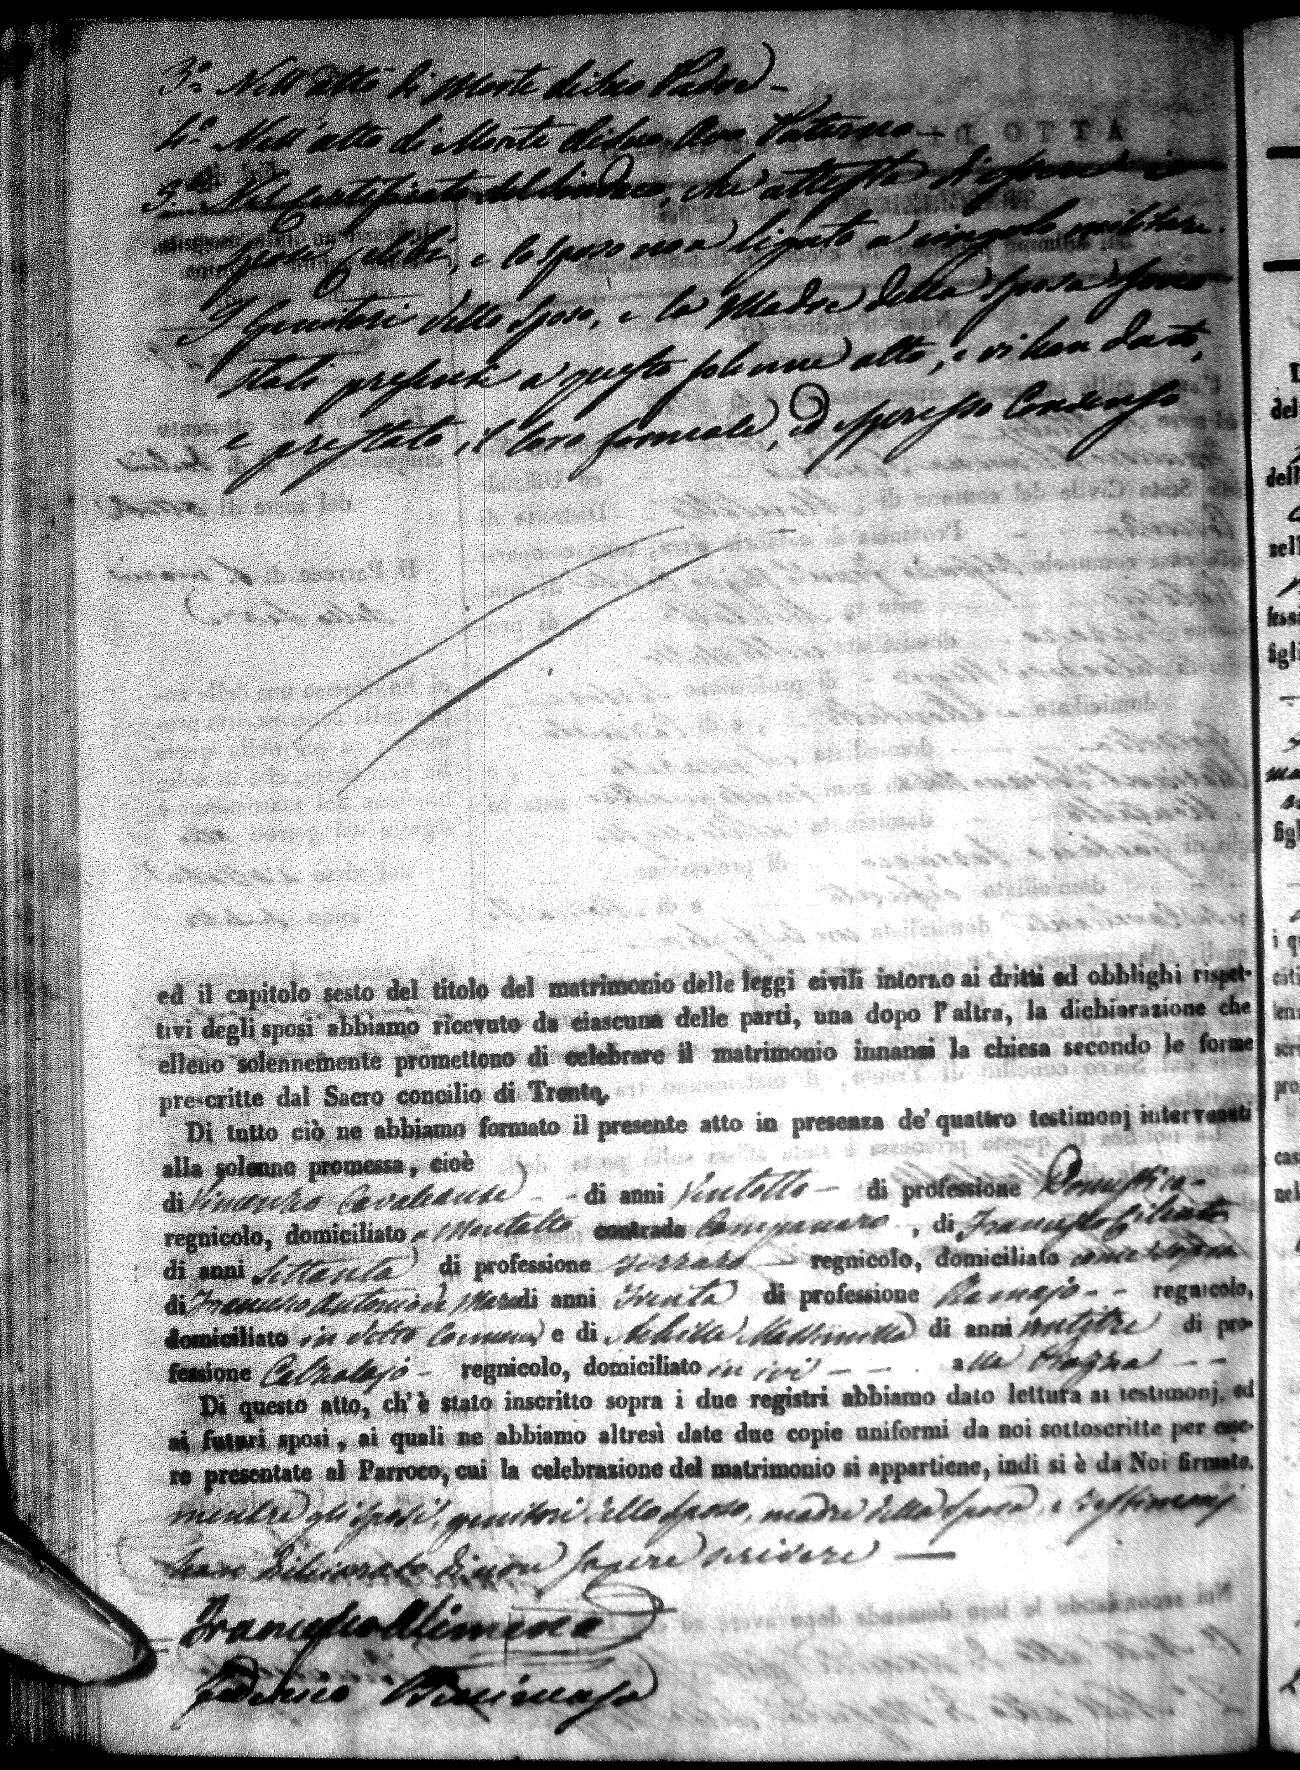 3.° Nell'atto di Morte di suo Padre –
4.° Nell'atto di Morte di suo Avo Paterno –
certificato del Sindaco, che attesta di essere i
sposi celibi, e lo sposo non ligato a vincolo militare.
I Genitori dello Sposo, e la Madre della Sposa sono
stati presenti a questo solenne atto, e vi han dato,
e prestato, il loro formale, ed espresso Consenso
ed il capitolo sesto del titolo del matrimonio delle leggi civili intorno ai dritti ed obblighi rispet-
tivi degli sposi abbiamo ricevuto da ciascuna delle parti, una dopo l'altra, la dichiarazione che
elleno solennemente promettono di celebrare il matrimonio innanzi la chiesa secondo le forme
prescritte dal Sacro concilio di Trento.
Di tutto ciò ne abbiamo formato il presente atto in presenza de' quattro testimonj intervenuti
alla solenne promessa, cioè
di Vincenzo Cavalcante – – di anni Ventotto – di professione Domestico –
regnicolo, domiciliato a Montalto contrada , di Francesco
di anni Settanta di professione Ferraro – regnicolo, domiciliato come sopra
di Francesco Antonio di anni Trenta di professione – – regnicolo,
domiciliato in detto Comune e di Achille di anni ventitre di pro-
fessione Calzolajo – regnicolo, domiciliato in ivi – –
Di questo atto, ch'è stato inscritto sopra i due registri abbiamo dato lettura ai testimonj, ed
ai futuri sposi, ai quali ne abbiamo altresì date due copie uniformi da noi sottoscritte per esse-
re presentate al Parroco, cui la celebrazione del matrimonio si appartiene, indi si è da Noi firmato.
mentre gli sposi, genitori dello sposo, madre della sposa, e testimonj
han dichiarato di non sapere scrivere —
Francesco Alimena
Federico